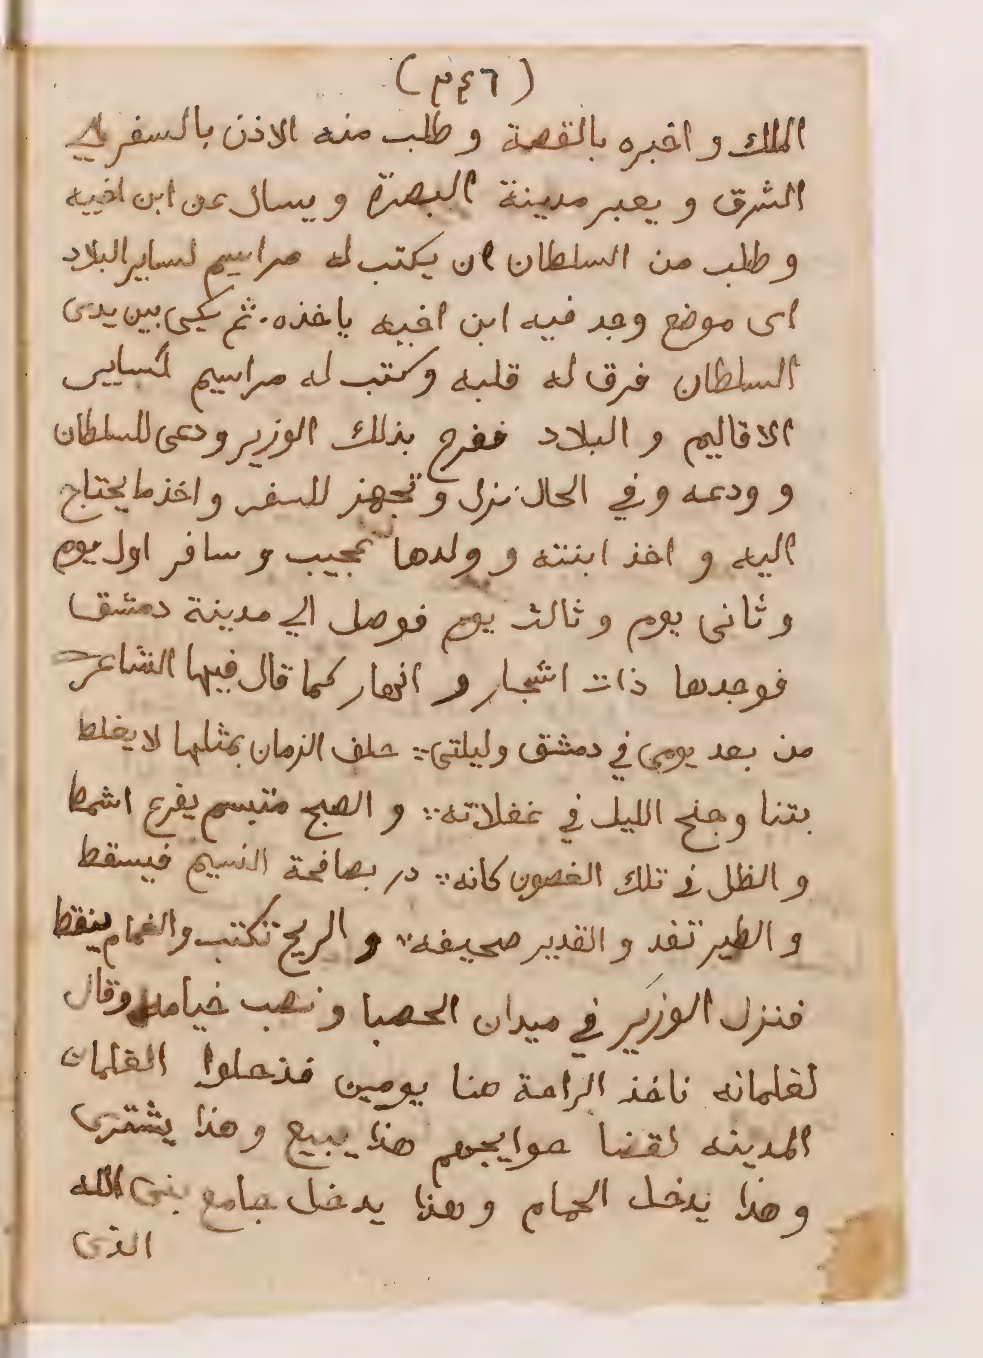 (٣٤٦)
الملك و اخبره بالقصة و طلب منه الاذن بالسفر الي
الشرق و يعبر مدينة البصرة و يسال عن ابن اخيه
و طلب من السلطان ان يكتب له مراسيم لساير البلاد
اى موضع وجد فيه ابن اخيه ياخذه. ثم بكى بين يدى
السلطان فرق له قلبه و كتب له مراسيم لساير
الاقاليم و البلاد ففرح بذلك الوزير و دعى للسلطان
و ودعه و في الحال نزل و تجهز للسفر و اخذ ما يحتاج
اليه و اخذ ابنته و ولدها عجيب و سافر اول يوم
و ثانى يوم و ثالث يوم فوصل الي مدينة دمشق
فوجدها ذات اشجار و انهار كما قال فيها الشاعر
من بعد يومى في دمشق وليلتى ∴ حلف الزمان بمثلها لا يغلط
بتنا و جنح الليل في غفلاته ∴ و الصبح متبسم بفرع اشمط
و الظل في تلك الغصون كانه ∴ در بصافحة النسيم فيسقط
و الطير تغد و القدير صحيفه ∴ و الريح تكتب و الغمام ينقط
فنزل الوزير في ميدان الحصبا و نصب خيامه و قال
لغلمانه ناخذ الراحة هنا يومين فدخلوا الغلمان
المدينه لقضا حوايجهم هذا يبيع و هذا يشترى
و هذا يدخل الحمام و هذا يدخل جامع بنى الله
الذى